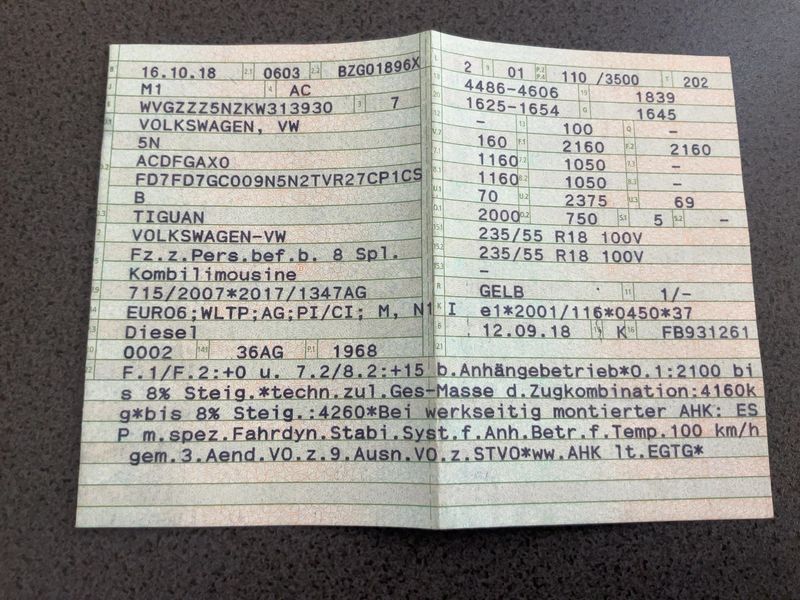 B 16.10.18 2.1 0603 2.2 BZG01896X
J M1 4 AC
E WVGZZZ5NZKW313930 3 7
VOLKSWAGEN, VW
5N
ACDFGAX0
FD7FD7GC009N5N2TVR27CP1CS
B
TIGUAN
VOLKSWAGEN-VW
Fz.z.Pers.bef.b. 8 Spl.
Kombilimousine
715/2007*2017/1347AG
EURO6;WLTP;AG;PI/CI; M, N1 I
Diesel
0002 14.1 36AG P.1 1968
L 2 9 01 P.2 P.4 110 /3500 T 202
4486-4606 19 1839
20 1625-1654 G 1645
12 - 13 100 Q -
V.7 160 F.1 2160 F.2 2160
7.1 1160 7.2 1050 -
1160 8.2 1050 -
U.1 70 U.2 2375 U.3 69
O.1 2000 O.2 750 S.1 5 S.2 -
15.1 235/55 R18 100V
15.2 235/55 R18 100V
15.3 -
R GELB 11 1/-
K e1*2001/116*0450*37
6 12.09.18 K 16 FB931261
21
F.1/F.2:+0 u. 7.2/8.2:+15 b.Anhängebetrieb*O.1:2100 bi
s 8% Steig.*techn.zul.Ges-Masse d.Zugkombination:4160k
g*bis 8% Steig.:4260*Bei werkseitig montierter AHK: ES
P m.spez.Fahrdyn.Stabi.Syst.f.Anh.Betr.f.Temp.100 km/h
gem.3.Aend.VO.z.9.Ausn.VO.z.STVO*ww.AHK lt.EGTG*